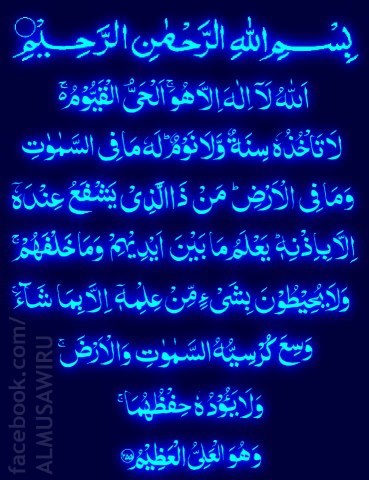 بِسْمِ اللهِ الرَّحْمٰنِ الرَّحِيْمِ
اَللهُ لَآ اِلٰهَ اِلَّا هُوَ ۚ اَلْحَیُّ الْقَيُّوْمُ ۚ
لَا تَاْخُذُهٗ سِنَةٌ وَّلَا نَوْمٌ ؕ لَهٗ مَا فِی السَّمٰوٰتِ
وَمَا فِی الْاَرْضِ ؕ مَنْ ذَا الَّذِیْ يَشْفَعُ عِنْدَهٗۤ
اِلَّا بِاِذْنِهٖ ؕ يَعْلَمُ مَا بَيْنَ اَيْدِيْهِمْ وَمَا خَلْفَهُمْ ۚ
وَلَا يُحِيْطُوْنَ بِشَیْءٍ مِّنْ عِلْمِهٖۤ اِلَّا بِمَا شَآءَ ۚ
وَسِعَ كُرْسِيُّهُ السَّمٰوٰتِ وَالْاَرْضَ ۚ
وَلَا يَـُٔوْدُهٗ حِفْظُهُمَا ۚ
وَهُوَ الْعَلِیُّ الْعَظِيْمُ
facebook.com/
ALMUSAWIRU